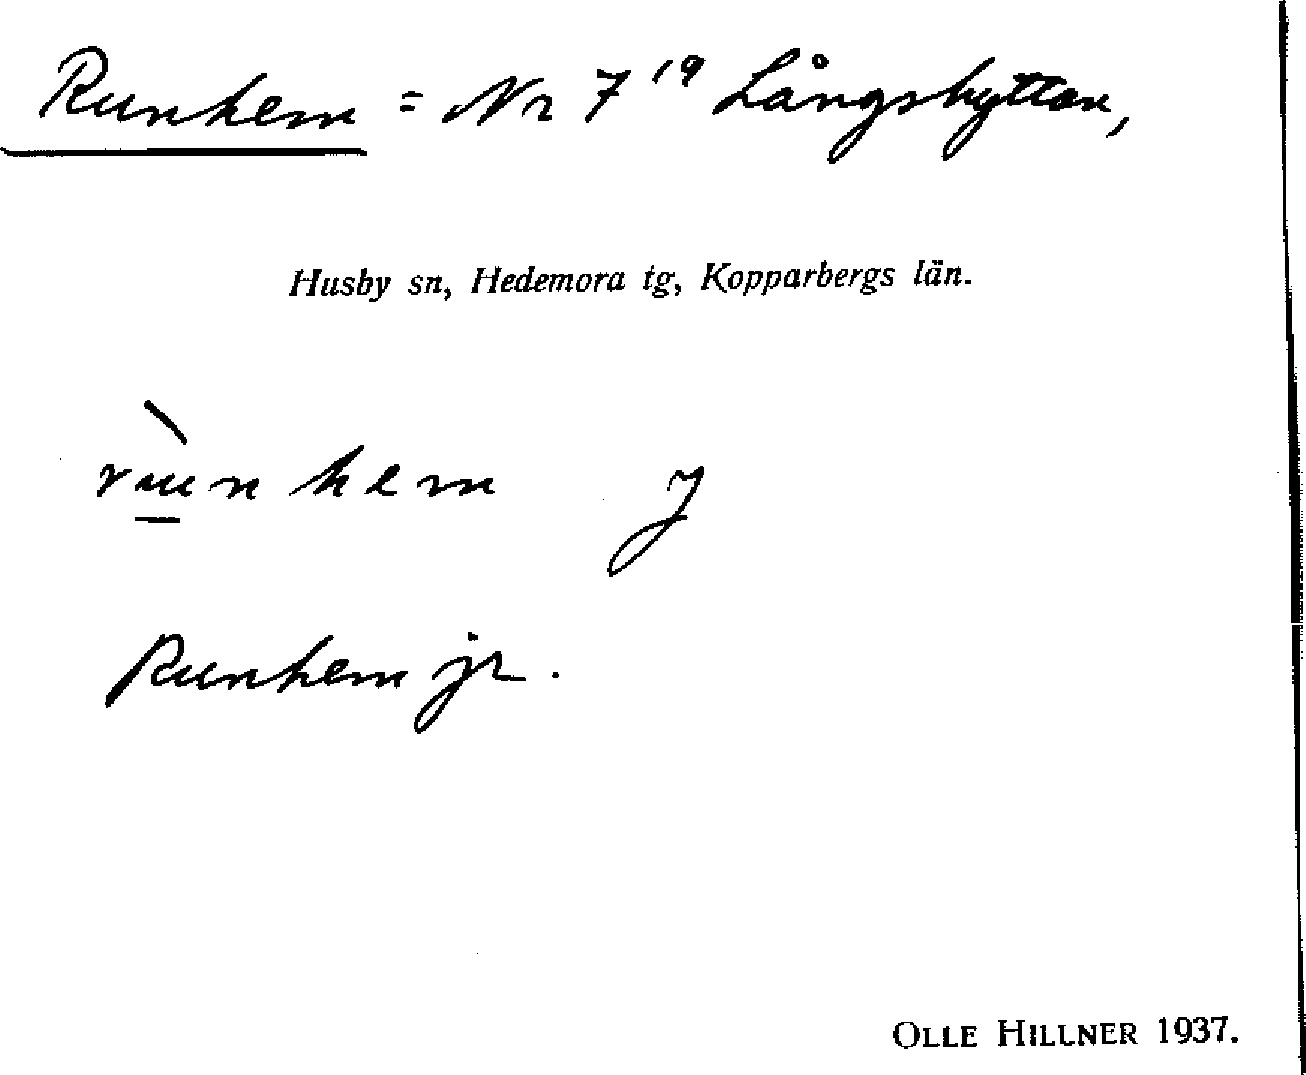 Runhem = Nr 7¹⁹ Långshyttan,
Husby sn, Hedemora tg, Kopparbergs län.
rɯ̱̀nhem J
Runhem jr.
OLLE HILLNER 1937.